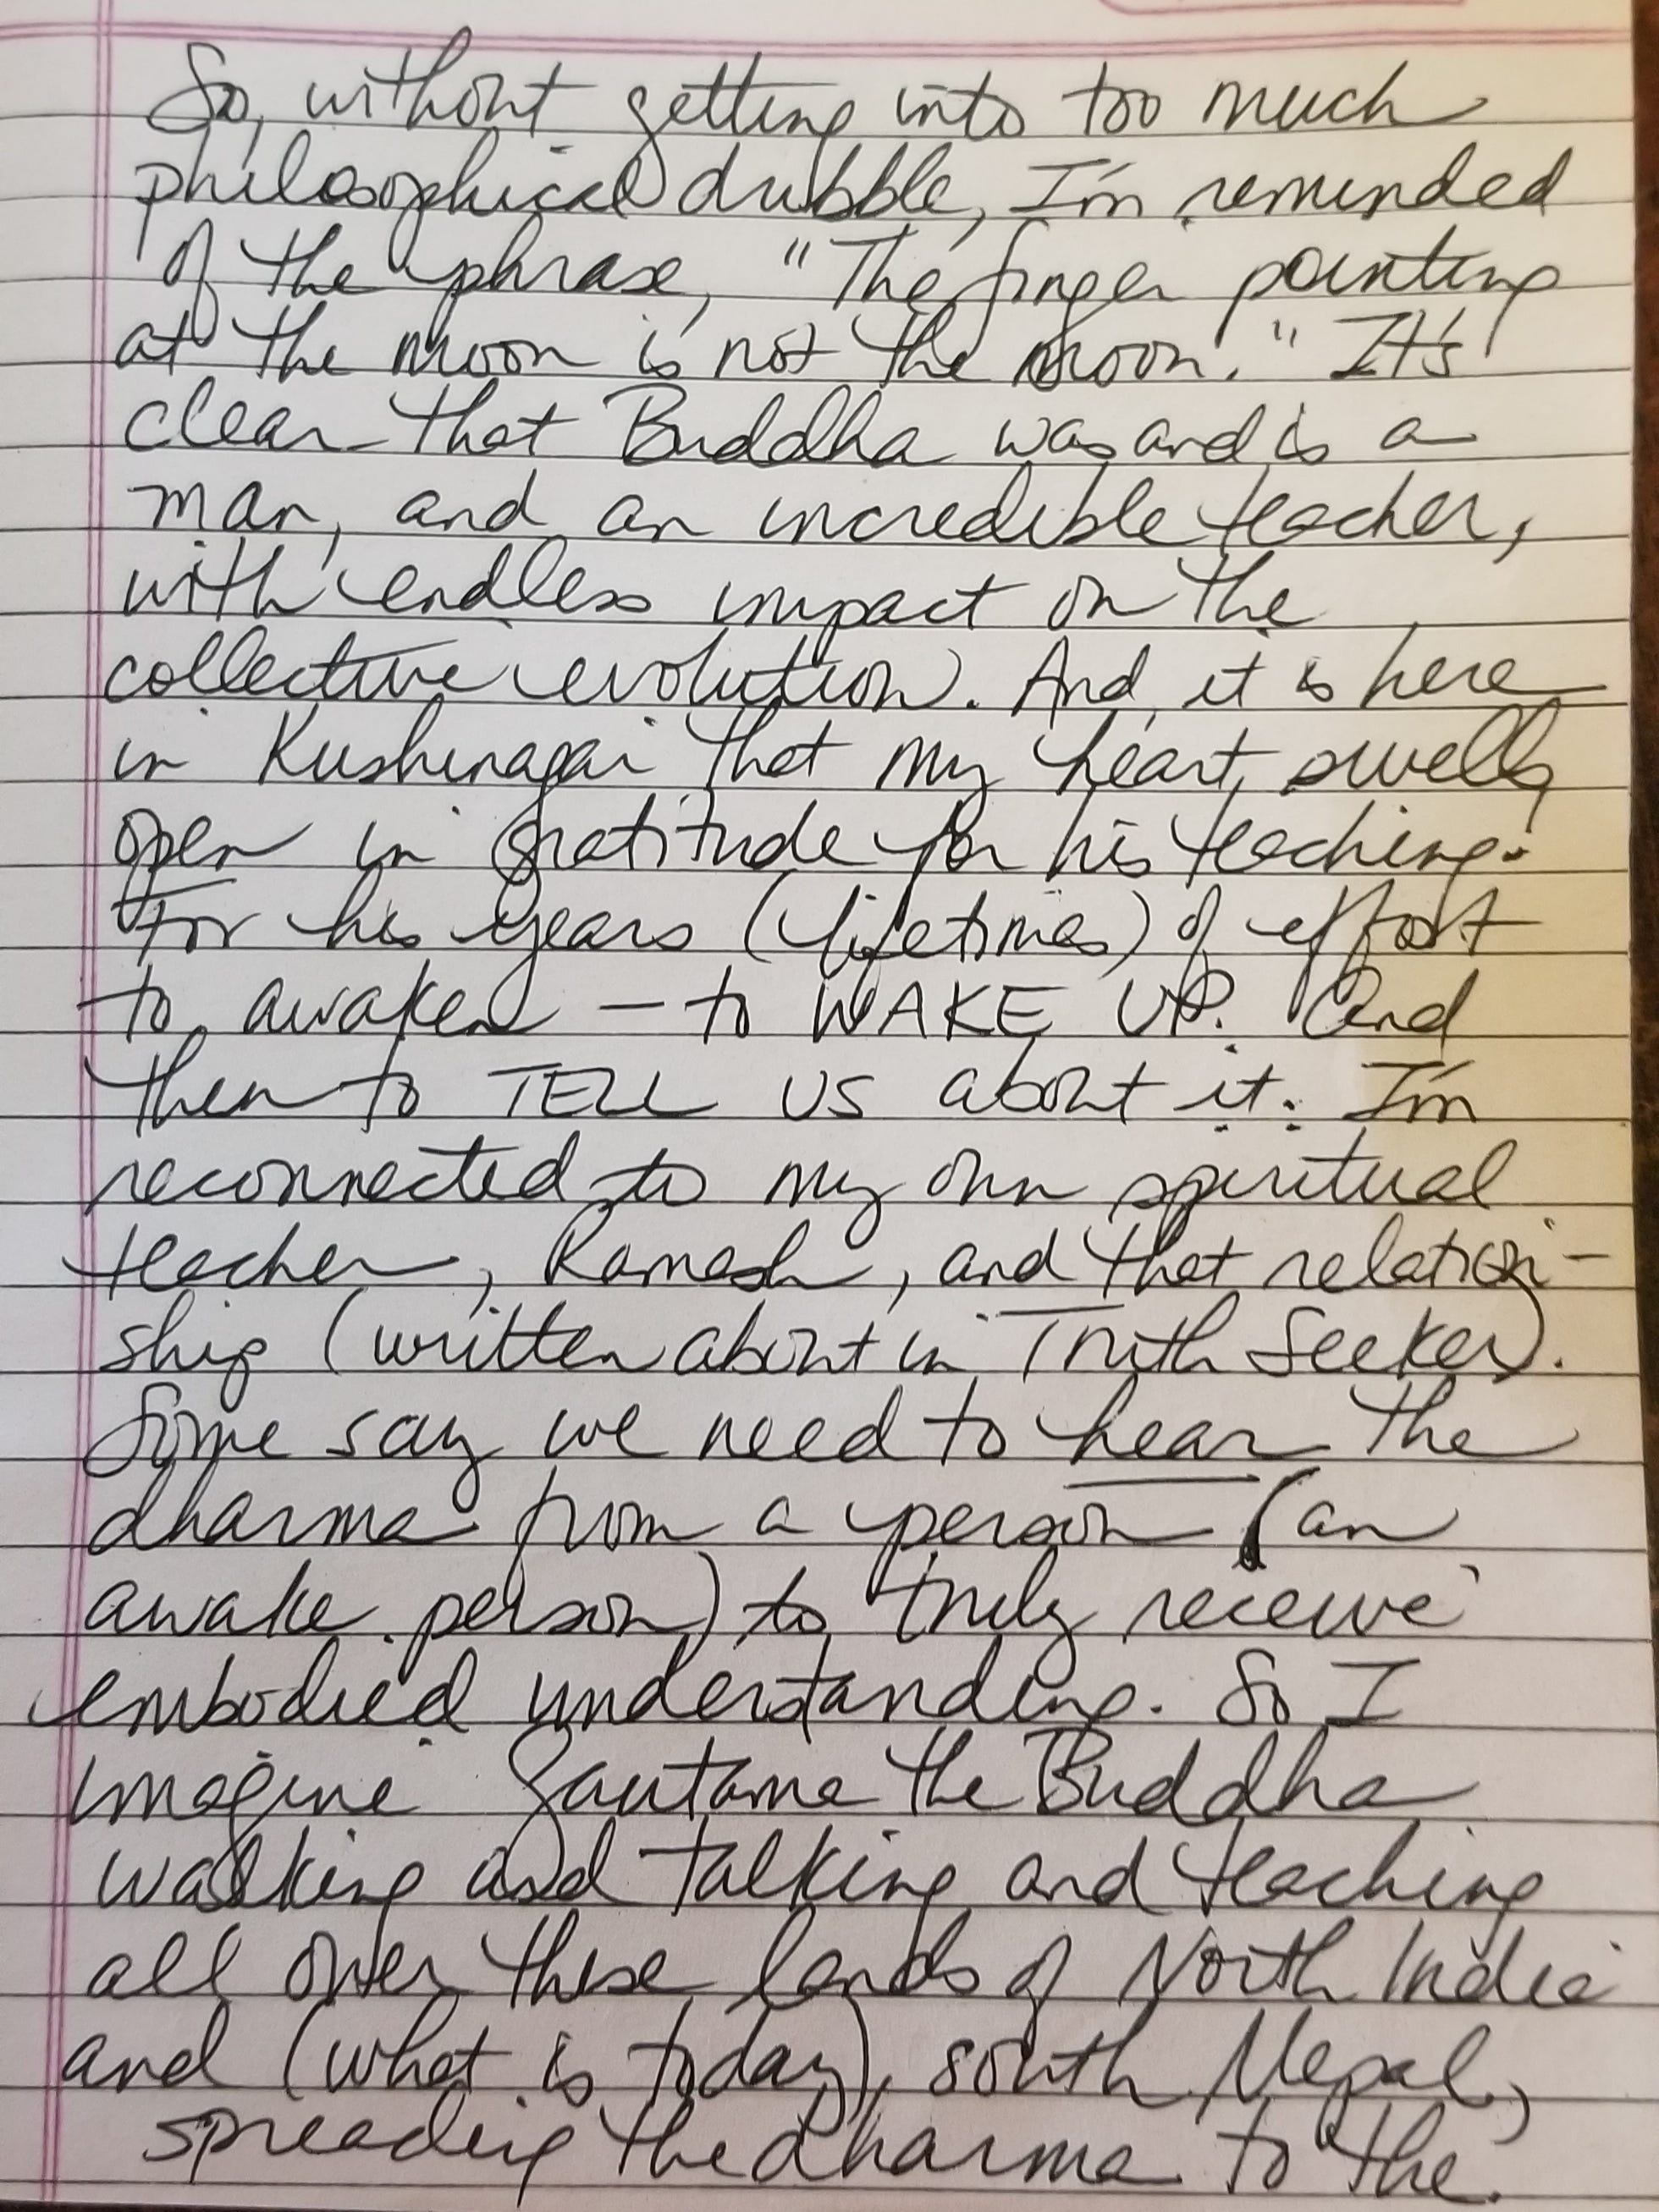 So, without getting into too much
philosophical dribble, I'm reminded
of the phrase, "The finger pointing
at the moon is not the moon." It's
clear that Buddha was and is a
man, and an incredible teacher,
with endless impact on the
collective evolution. And, it is here
in Kushinagar that my heart swells
open in gratitude for his teaching.
For his years (lifetimes) of effort
to awaken — to WAKE UP. And
then to TELL US about it. I'm
reconnected to my own spiritual
teacher, Ramesh, and that relation-
ship (written about in Truth Seeker).
Some say we need to hear the
dharma from a person (an
awake person) to truly receive
embodied understanding. So I
imagine Gautama the Buddha
walking and talking and teaching
all over these lands of North India
and (what is today), south Nepal,
spreading the dharma to the